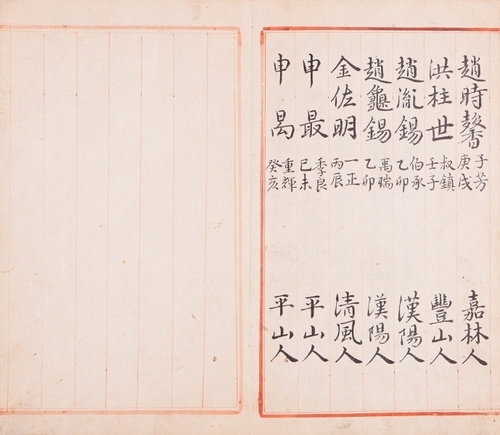 趙時馨 子芳 庚戌 嘉林人
洪柱世 叔鎮 壬子 豐山人
趙胤錫 伯承 乙卯 漢陽人
趙龜錫 禹瑞 乙卯 漢陽人
金佐明 一正 丙辰 清風人
申最 季良 己未 平山人
申 重輝 癸亥 平山人